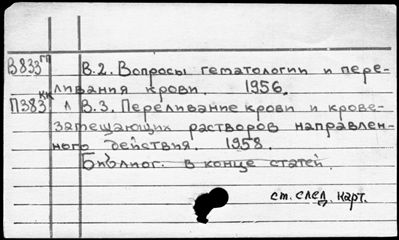 В833гп В.2. Вопросы гематологии и пере-
ливания крови. 1956.
П383кк л В.3. Переливание крови и крове-
замещающих растворов направлен-
ного действия. 1958.
Библиог. в конце статей.
см. след. карт.